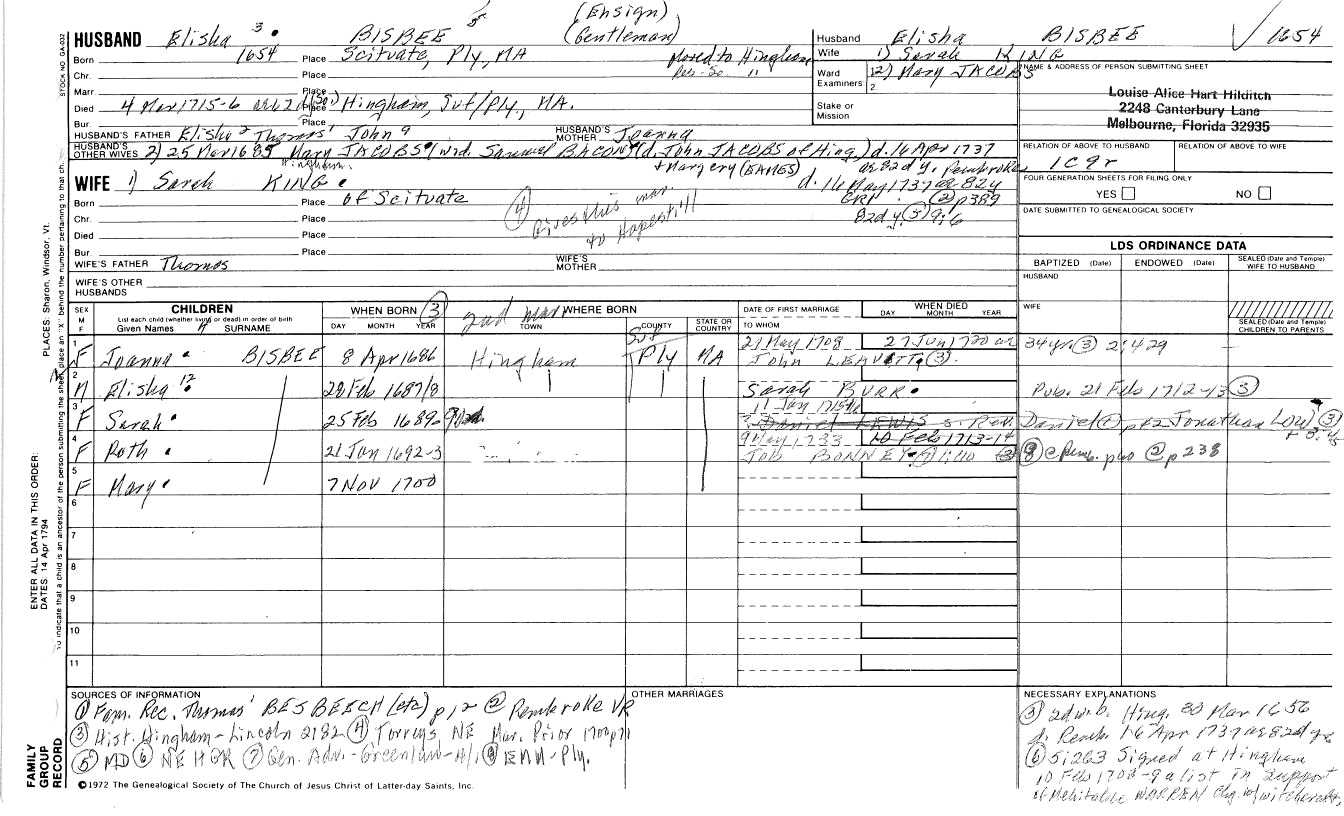 (Ensign)
HUSBAND Elisha 3 BISBEE (Gentleman)
Born 1654 Place Scituate, Ply, MA Moved to Hingham
Chr. Place
Marr. Place
Died 4 Mar 1715-6 Place Hingham, Suf/Ply, MA.
Bur. Place
HUSBAND'S FATHER Elisha 2 Thomas 1 John HUSBAND'S MOTHER Joanna
HUSBAND'S OTHER WIVES 2) 25 Mar 1685 Mary JACOBS (wid. Samuel BACON) (d. John JACOBS of Hing.) d. 16 Apr 1737
Hingham. + Margery (EAMES) ae 82 d y. Pembroke
WIFE 1) Sarah KING d. 16 May 1737 ae 82 y
Born Place of Scituate GRI (2) p389
Chr. Place (4) Gives this mar. to Hopestill 82d y. (3) 9:6
Died Place
Bur. Place
WIFE'S FATHER Thomas WIFE'S MOTHER
WIFE'S OTHER HUSBANDS
Husband Elisha BISBEE 1654
Wife 1) Sarah KING
Ward Examiners 1 2) Mary JACOBS
2
Stake or Mission
NAME & ADDRESS OF PERSON SUBMITTING SHEET
Louise Alice Hart Hilditch
2248 Canterbury Lane
Melbourne, Florida 32935
RELATION OF ABOVE TO HUSBAND RELATION OF ABOVE TO WIFE
1C9r
FOUR GENERATION SHEETS FOR FILING ONLY
YES NO
DATE SUBMITTED TO GENEALOGICAL SOCIETY
LDS ORDINANCE DATA
BAPTIZED (Date) ENDOWED (Date) SEALED (Date and Temple) WIFE TO HUSBAND
HUSBAND
WIFE
SEALED (Date and Temple) CHILDREN TO PARENTS
SEX M F CHILDREN WHEN BORN (3) 2nd mar WHERE BORN DATE OF FIRST MARRIAGE WHEN DIED
List each child (whether living or dead) in order of birth
Given Names SURNAME DAY MONTH YEAR TOWN COUNTY STATE OR COUNTRY TO WHOM DAY MONTH YEAR
Suf
1 F Joanna BISBEE 8 Apr 1686 Hingham Ply MA 21 May 1708 27 Jun 1720 ae 34 yr (3) 2:429
John LEAVITT (3)
2 M Elisha 28 Feb 1687/8 Sarah BURR Pub. 21 Feb 1712-13 (3)
3 F Sarah 25 Feb 1689- 11 Jan Daniel LEWIS Jonathan Low (3)
4 F Ruth 21 Jan 1692-3 9 May 1733 10 Feb 1713-14
Job BONNEY (2) p238
5 F Mary 7 Nov 1700
6
7
8
9
10
11
SOURCES OF INFORMATION
(1) Fam. Rec. Thomas 1 BESBEECH (etc) p12 (2) Pembroke VR
(3) Hist. Hingham-Lincoln 2:82 (4) Torreys NE Mar. Prior 1700 p71
(5) MD (6) NEHGR (7) Gen. Adv.-Greenlaw (8) EMM-Ply.
OTHER MARRIAGES
NECESSARY EXPLANATIONS
(3) 2d w. b. Hing. 30 Mar 1656
d. Pemb. 16 Apr 1737 ae 82d yr
(6) 5:263 Signed at Hingham
10 Feb 1708-9 a list in support
of Mehitable WARREN chg w/ witchcraft,
©1972 The Genealogical Society of The Church of Jesus Christ of Latter-day Saints, Inc.
STOCK NO. GA-032
PLACES: Sharon, Windsor, Vt.
ENTER ALL DATA IN THIS ORDER:
DATES: 14 Apr 1794
To indicate that a child is an ancestor of the person submitting the sheet, place an "X" behind the number pertaining to that child.
FAMILY GROUP RECORD